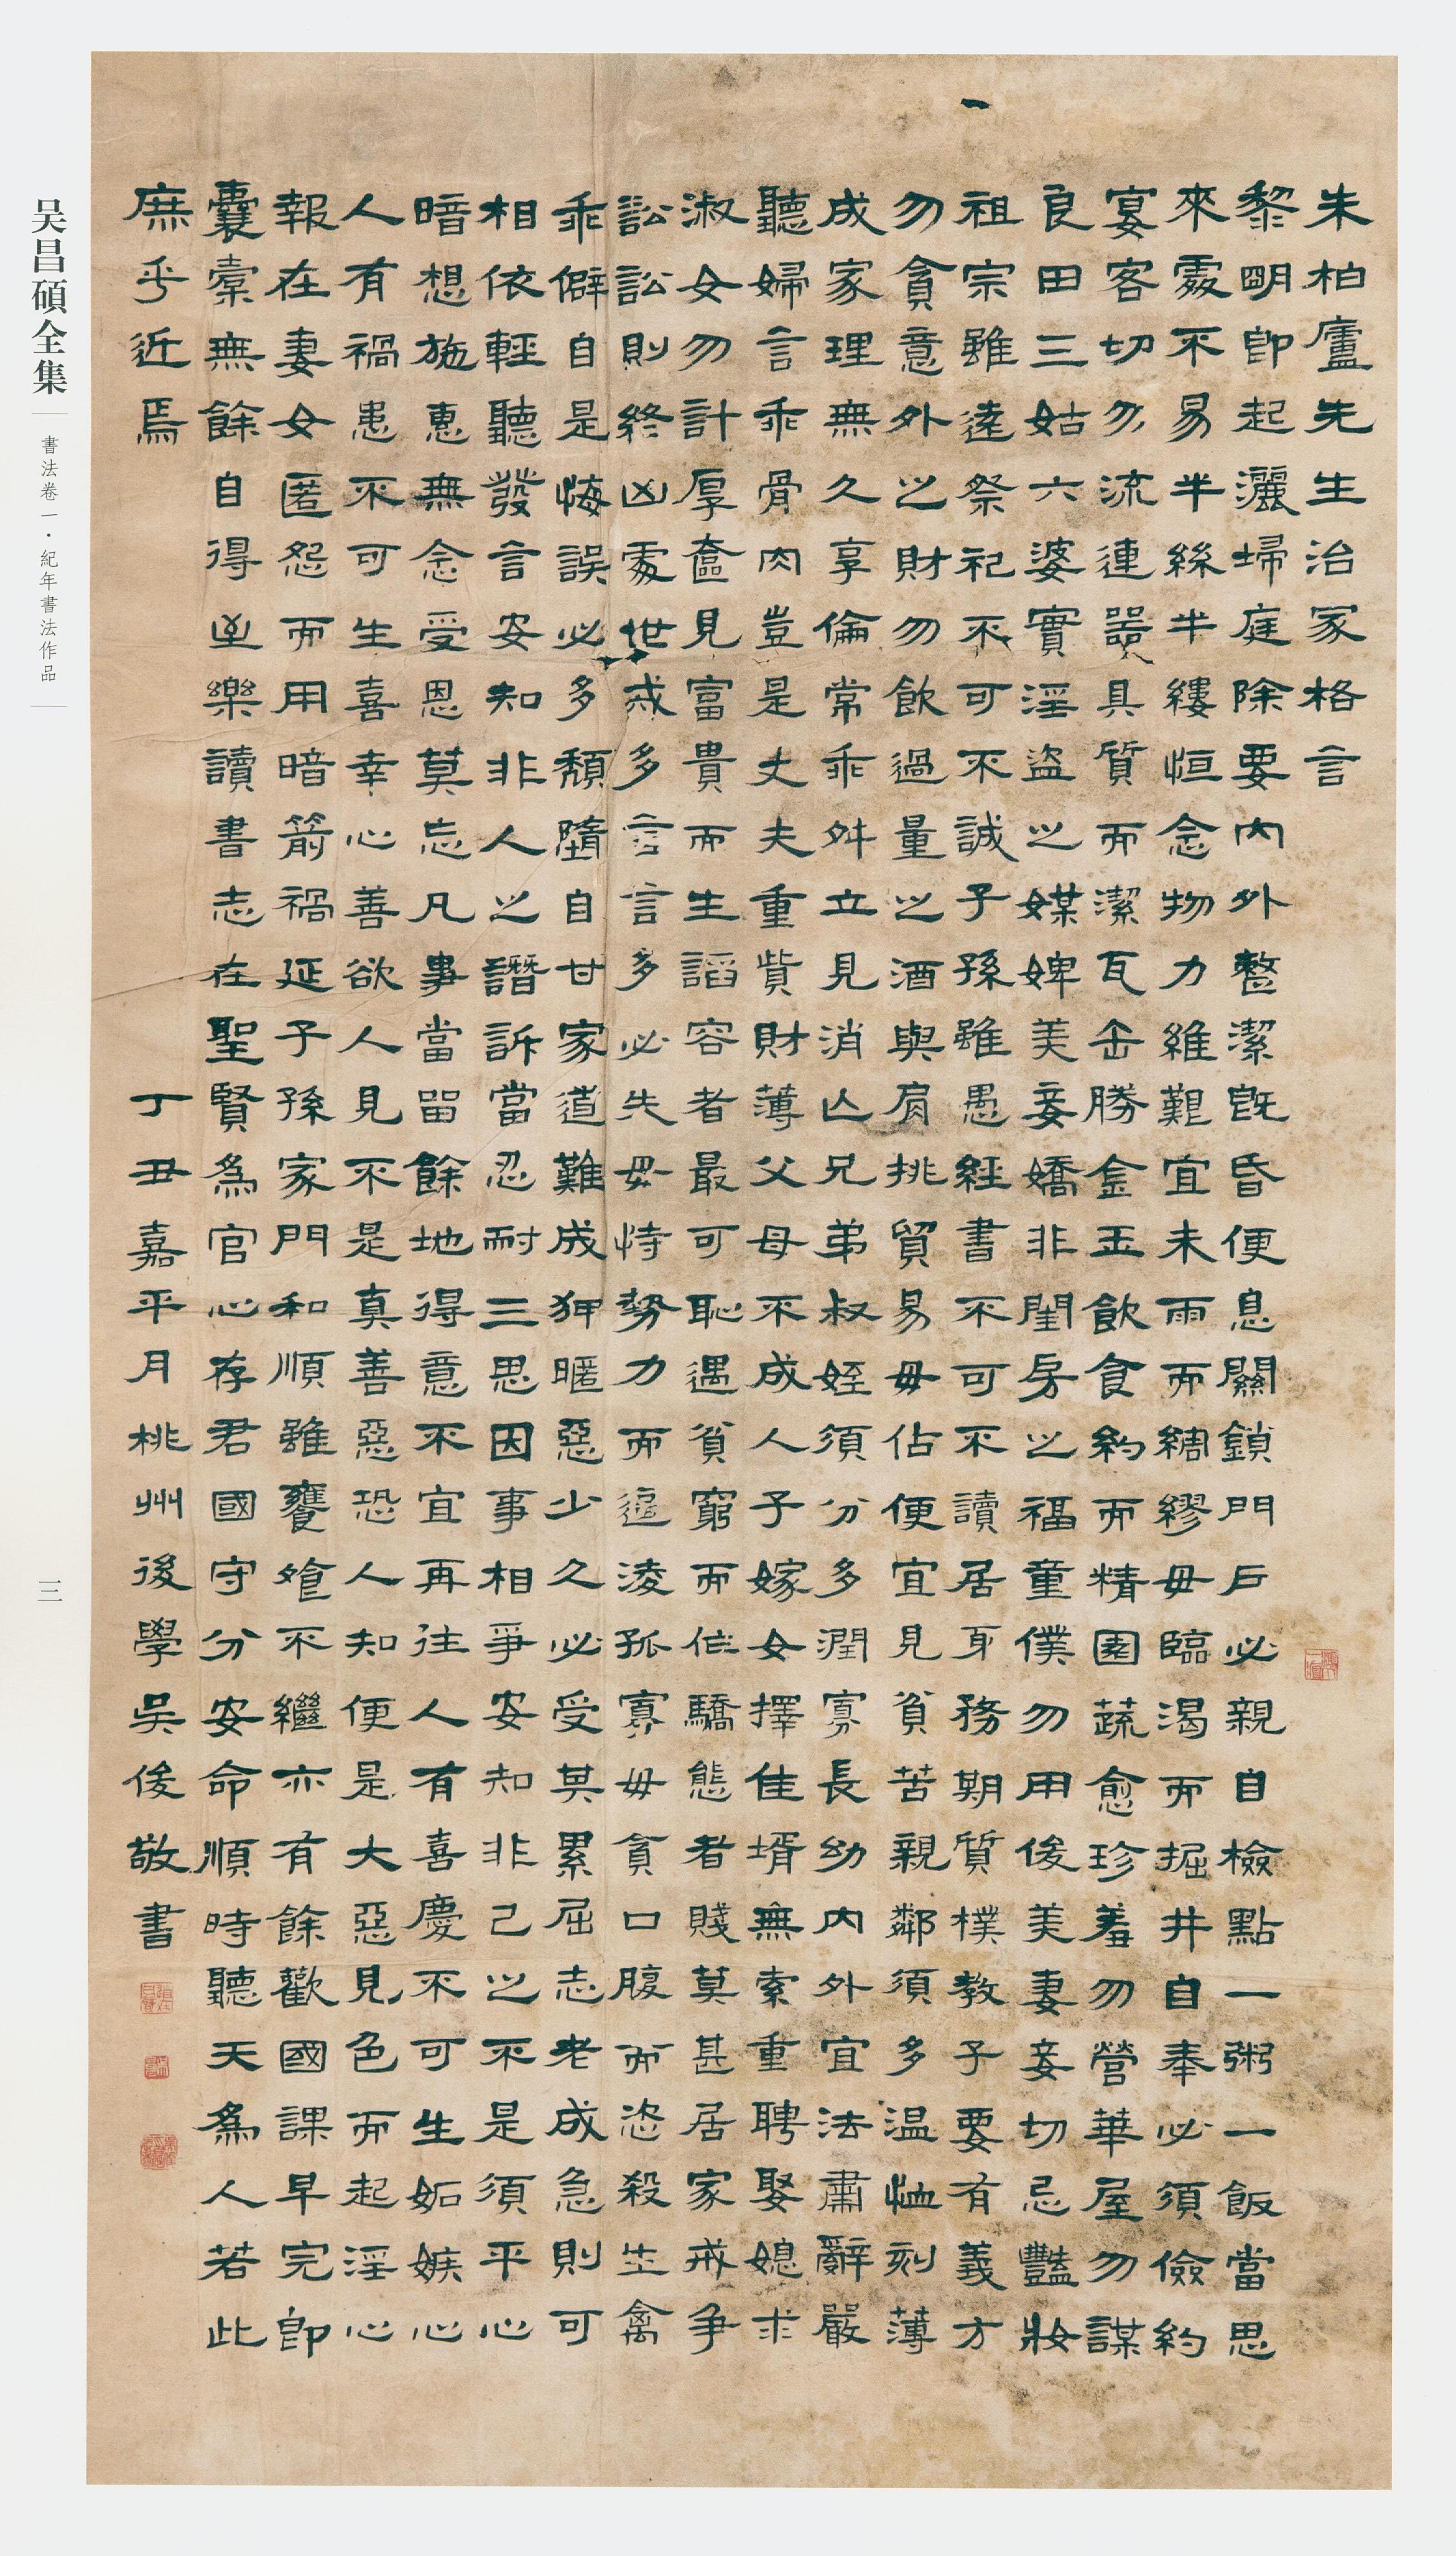 朱柏廬先生治家格言
黎明即起灑埽庭除要內外整潔既昏便息關鎖門戶必親自檢點一粥一飯當思
來處不易半絲半縷恒念物力維艱宜未雨而綢繆毋臨渴而掘井自奉必須儉約
宴客切勿流連器具質而潔瓦缶勝金玉飲食約而精園蔬愈珍羞勿營華屋勿謀
良田三姑六婆實淫盜之媒婢美妾嬌非閨房之福童僕勿用俊美妻妾切忌豔妝
祖宗雖遠祭祀不可不誠子孫雖愚經書不可不讀居身務期質樸教子要有義方
勿貪意外之財勿飲過量之酒與肩挑貿易毋佔便宜見貧苦親鄰須多温恤刻薄
成家理無久享倫常乖舛立見消亡兄弟叔姪須分多潤寡長幼內外宜法肅辭嚴
聽婦言乖骨肉豈是丈夫重貲財薄父母不成人子嫁女擇佳壻無索重聘娶媳求
淑女勿計厚奩見富貴而生謟容者最可恥遇貧窮而作驕態者賤莫甚居家戒爭
訟訟則終凶處世戒多言言多必失毋恃勢力而逼凌孤寡毋貪口腹而恣殺生禽
乖僻自是悔誤必多頹隨自甘家道難成狎暱惡少久必受其累屈志老成急則可
相依輕聽發言安知非人之譖訴當忍耐三思因事相爭安知非己之不是須平心
暗想施惠無念受恩莫忘凡事當留餘地得意不宜再往人有喜慶不可生妬嫉心
人有禍患不可生喜幸心善欲人見不是真善惡恐人知便是大惡見色而起淫心
報在妻女匿怨而用暗箭禍延子孫家門和順雖饔飧不繼亦有餘歡國課早完即
囊橐無餘自得至樂讀書志在聖賢為官心存君國守分安命順時聽天為人若此
庶乎近焉
丁丑嘉平月桃州後學吳俊敬書
吴昌碩全集
書法卷一·紀年書法作品
三